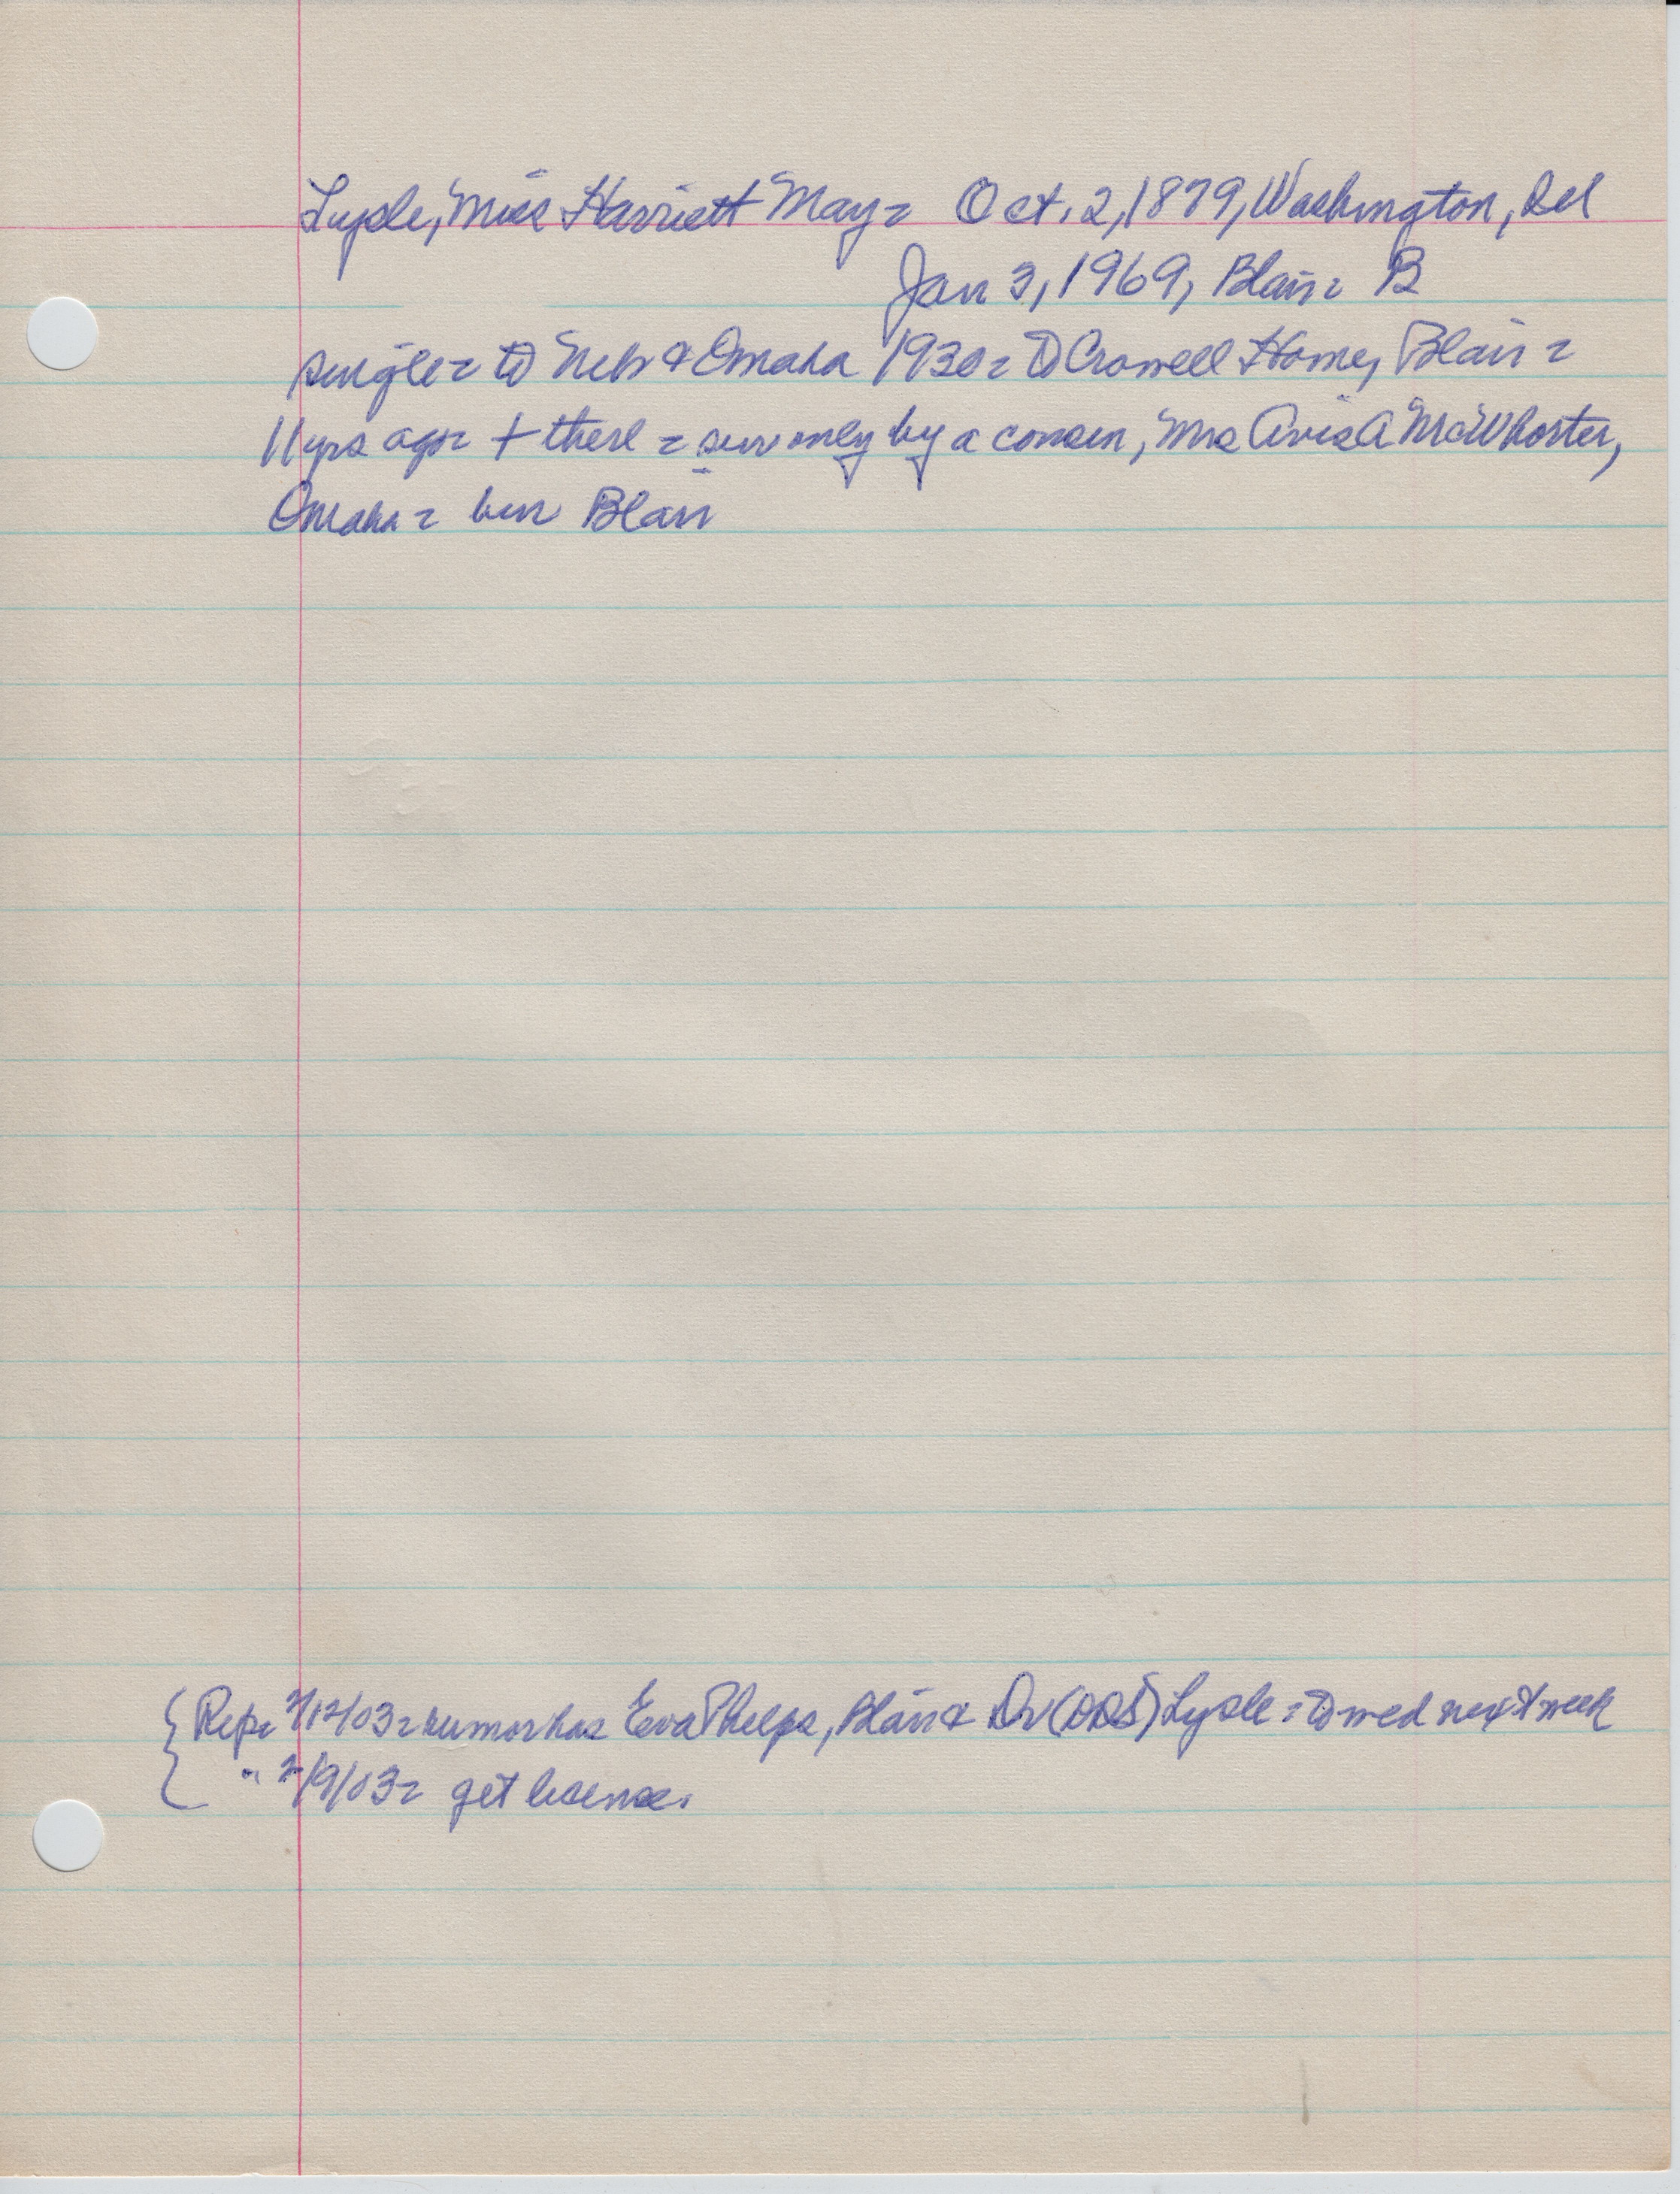 Lysle, Miss Harriett May = Oct. 2, 1879, Washington, Del
Jan 3, 1969, Blair = B
single = to Neb & Omaha 1930 = to Crowell Home, Blair =
11 yrs ago + there = surv only by a cousin, Mrs Avis A McWhorter,
Omaha = bur Blair
{ Rep = 2/12/03 = rumor has Eva Phelps, Blair & Dr (DDS) Lysle = to wed next week
" 2/19/03 = get license.